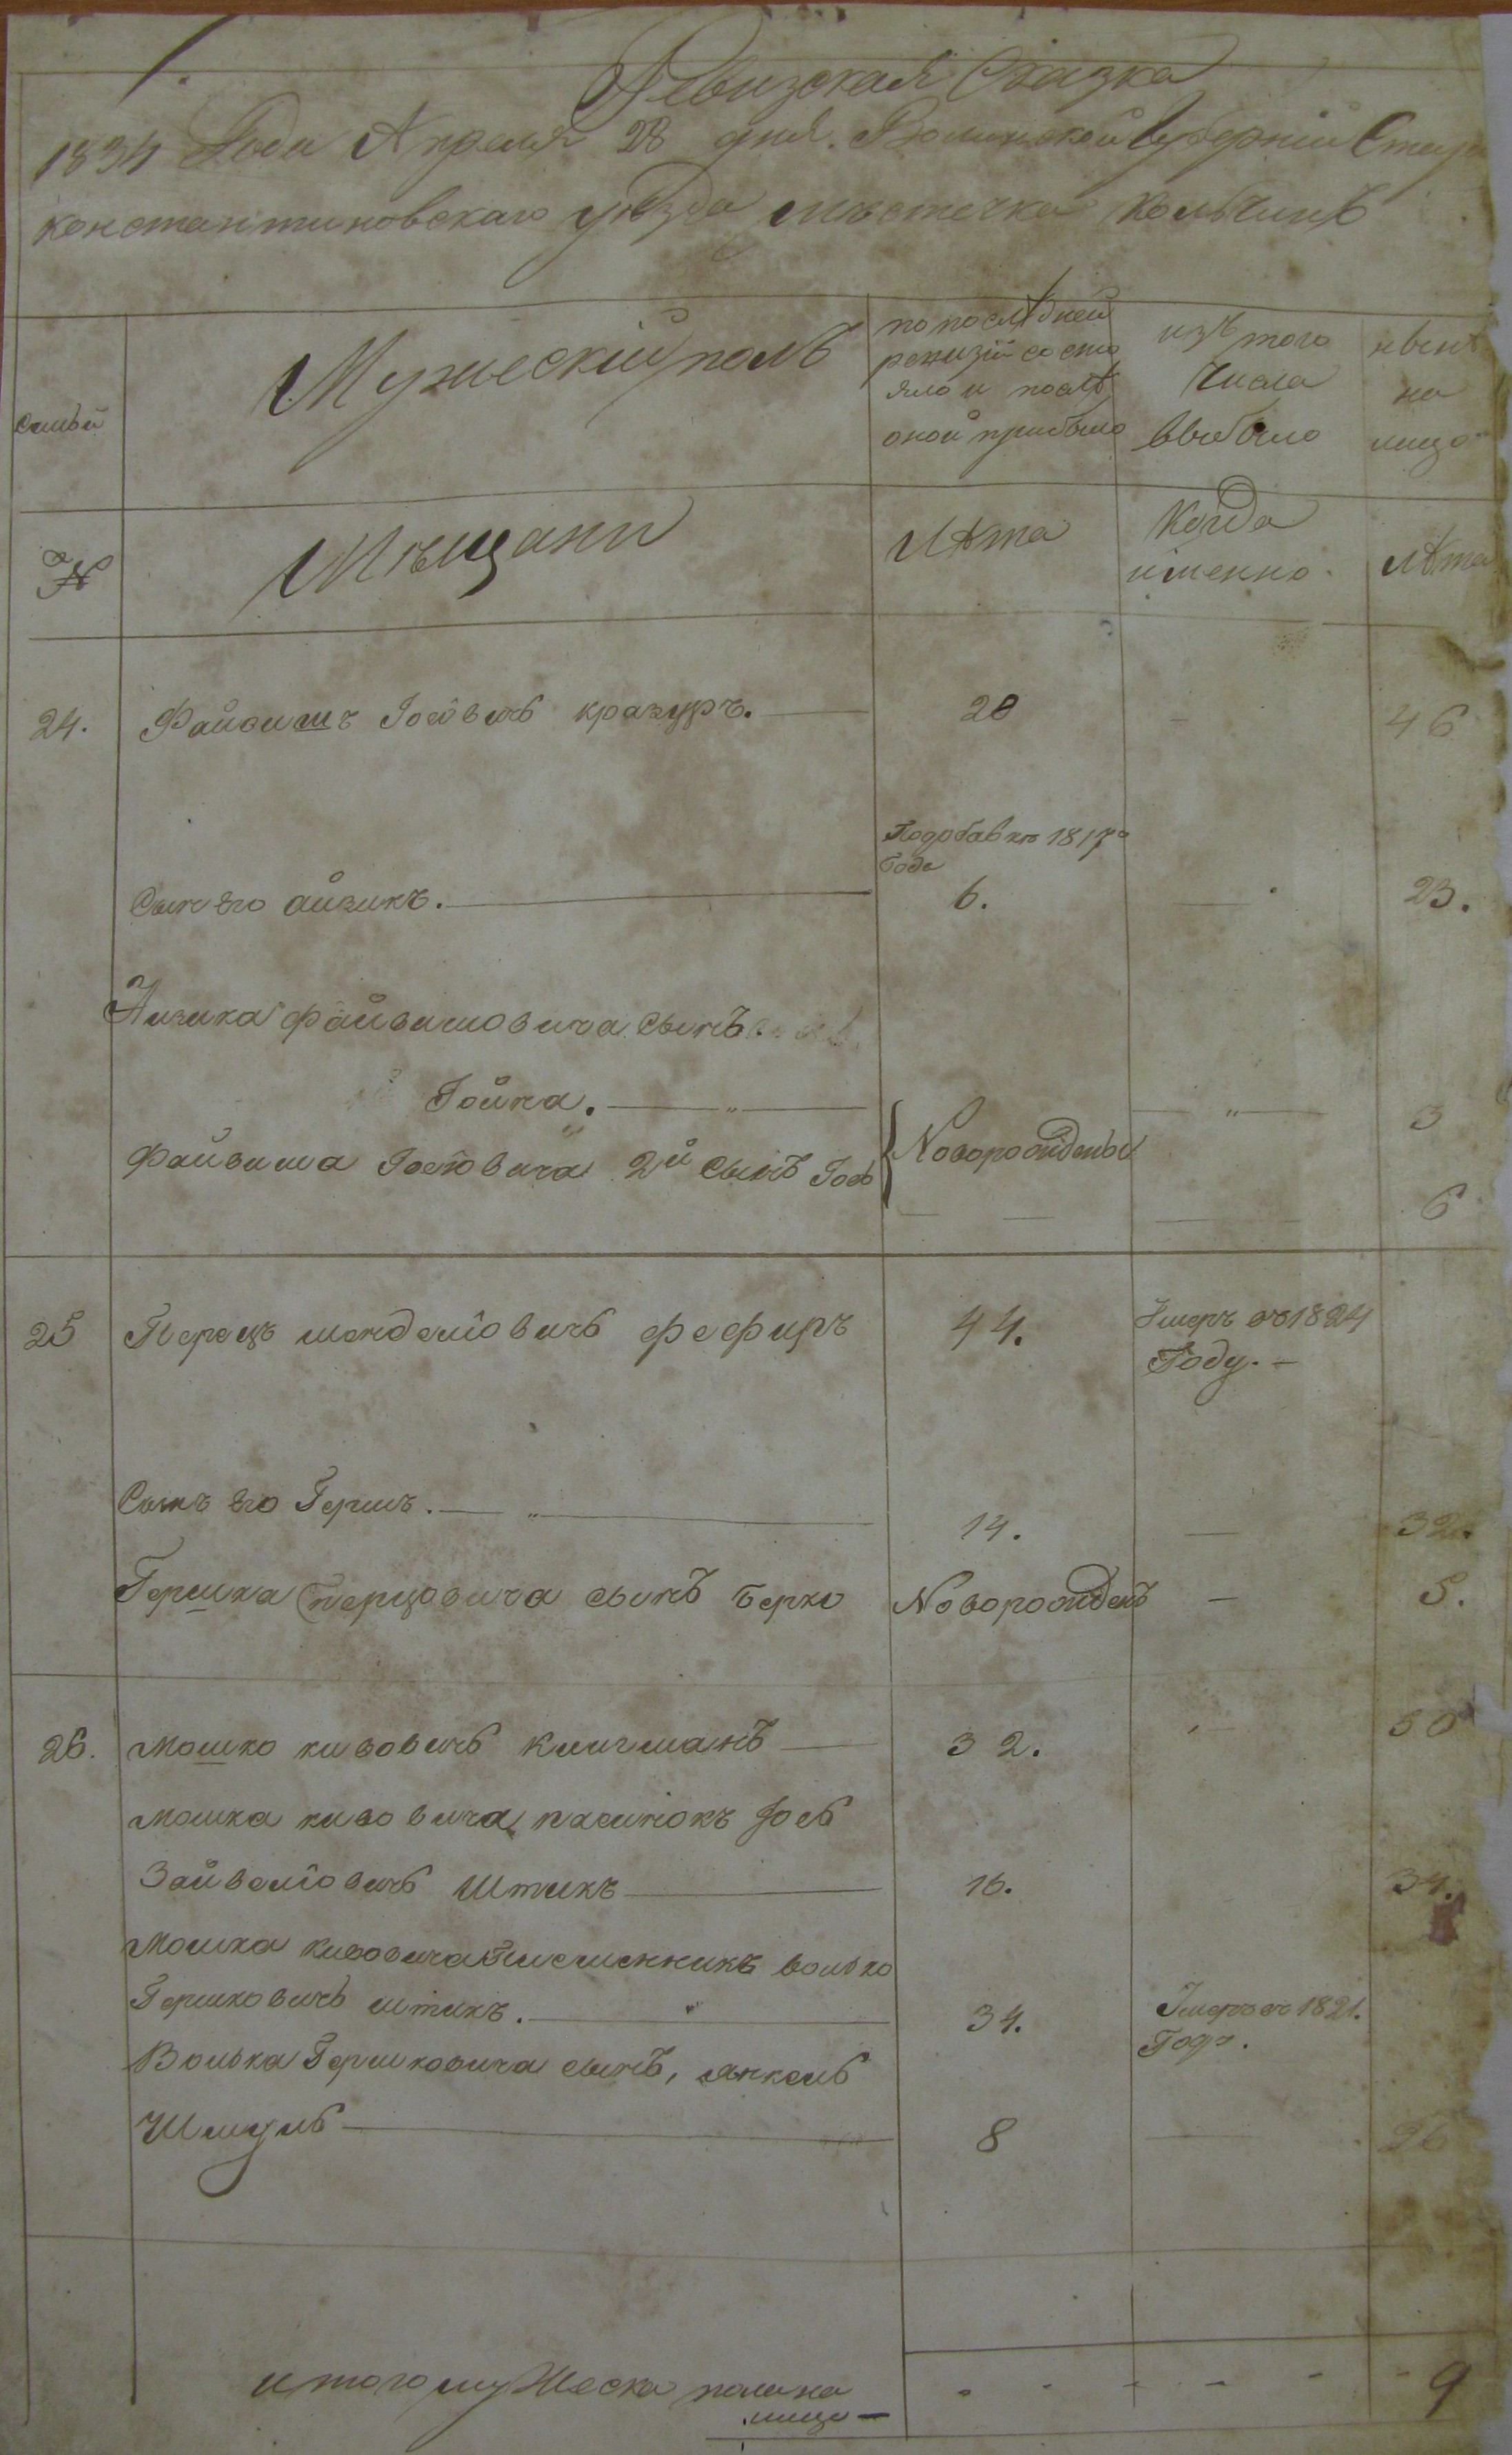 Ревизская Сказка
1834 Года Апреля 28 дня. Волынской Губернiи Старо
константиновскаго уѣзда мѣстечка Кольчинъ
семьи
Мужескiй полъ
по послѣдней
ревизiи состо
яло и послѣ
оной прибыло
изъ того
числа
выбыло
нынѣ
на
лицо
№
Мѣщани
Лѣта
Когда
именно.
Лѣта
24. Файвишъ Iосiовичъ кразуръ. 28 46
Подобавкѣ 1817го
Года
Сынъ его айзикъ. 6. 23.
Айзика файвишовича сынъ
Iойна. 3
Файвиша Iосiовича 2й сынъ Iось Новорожденны 6
25 Перецъ менделiовичъ фефиръ 44. Умеръ въ 1824
Году.
Сынъ его Гершъ. 14. 32.
Гершка перцовича сынъ берко Новорожденъ 5.
26. мошко кивовичъ клигманъ 32. 50
мошка кивовича пасинокъ Iось
Зайвелiовичъ Штикъ 16. 34.
Мошка кивовича племенникъ волько
Гершковичъ штикъ. 34. Умеръ въ 1821.
Годе.
Волька Гершковича сынъ, янкель
Шмуль 8 26
итого мужеска пола на
лицо 9